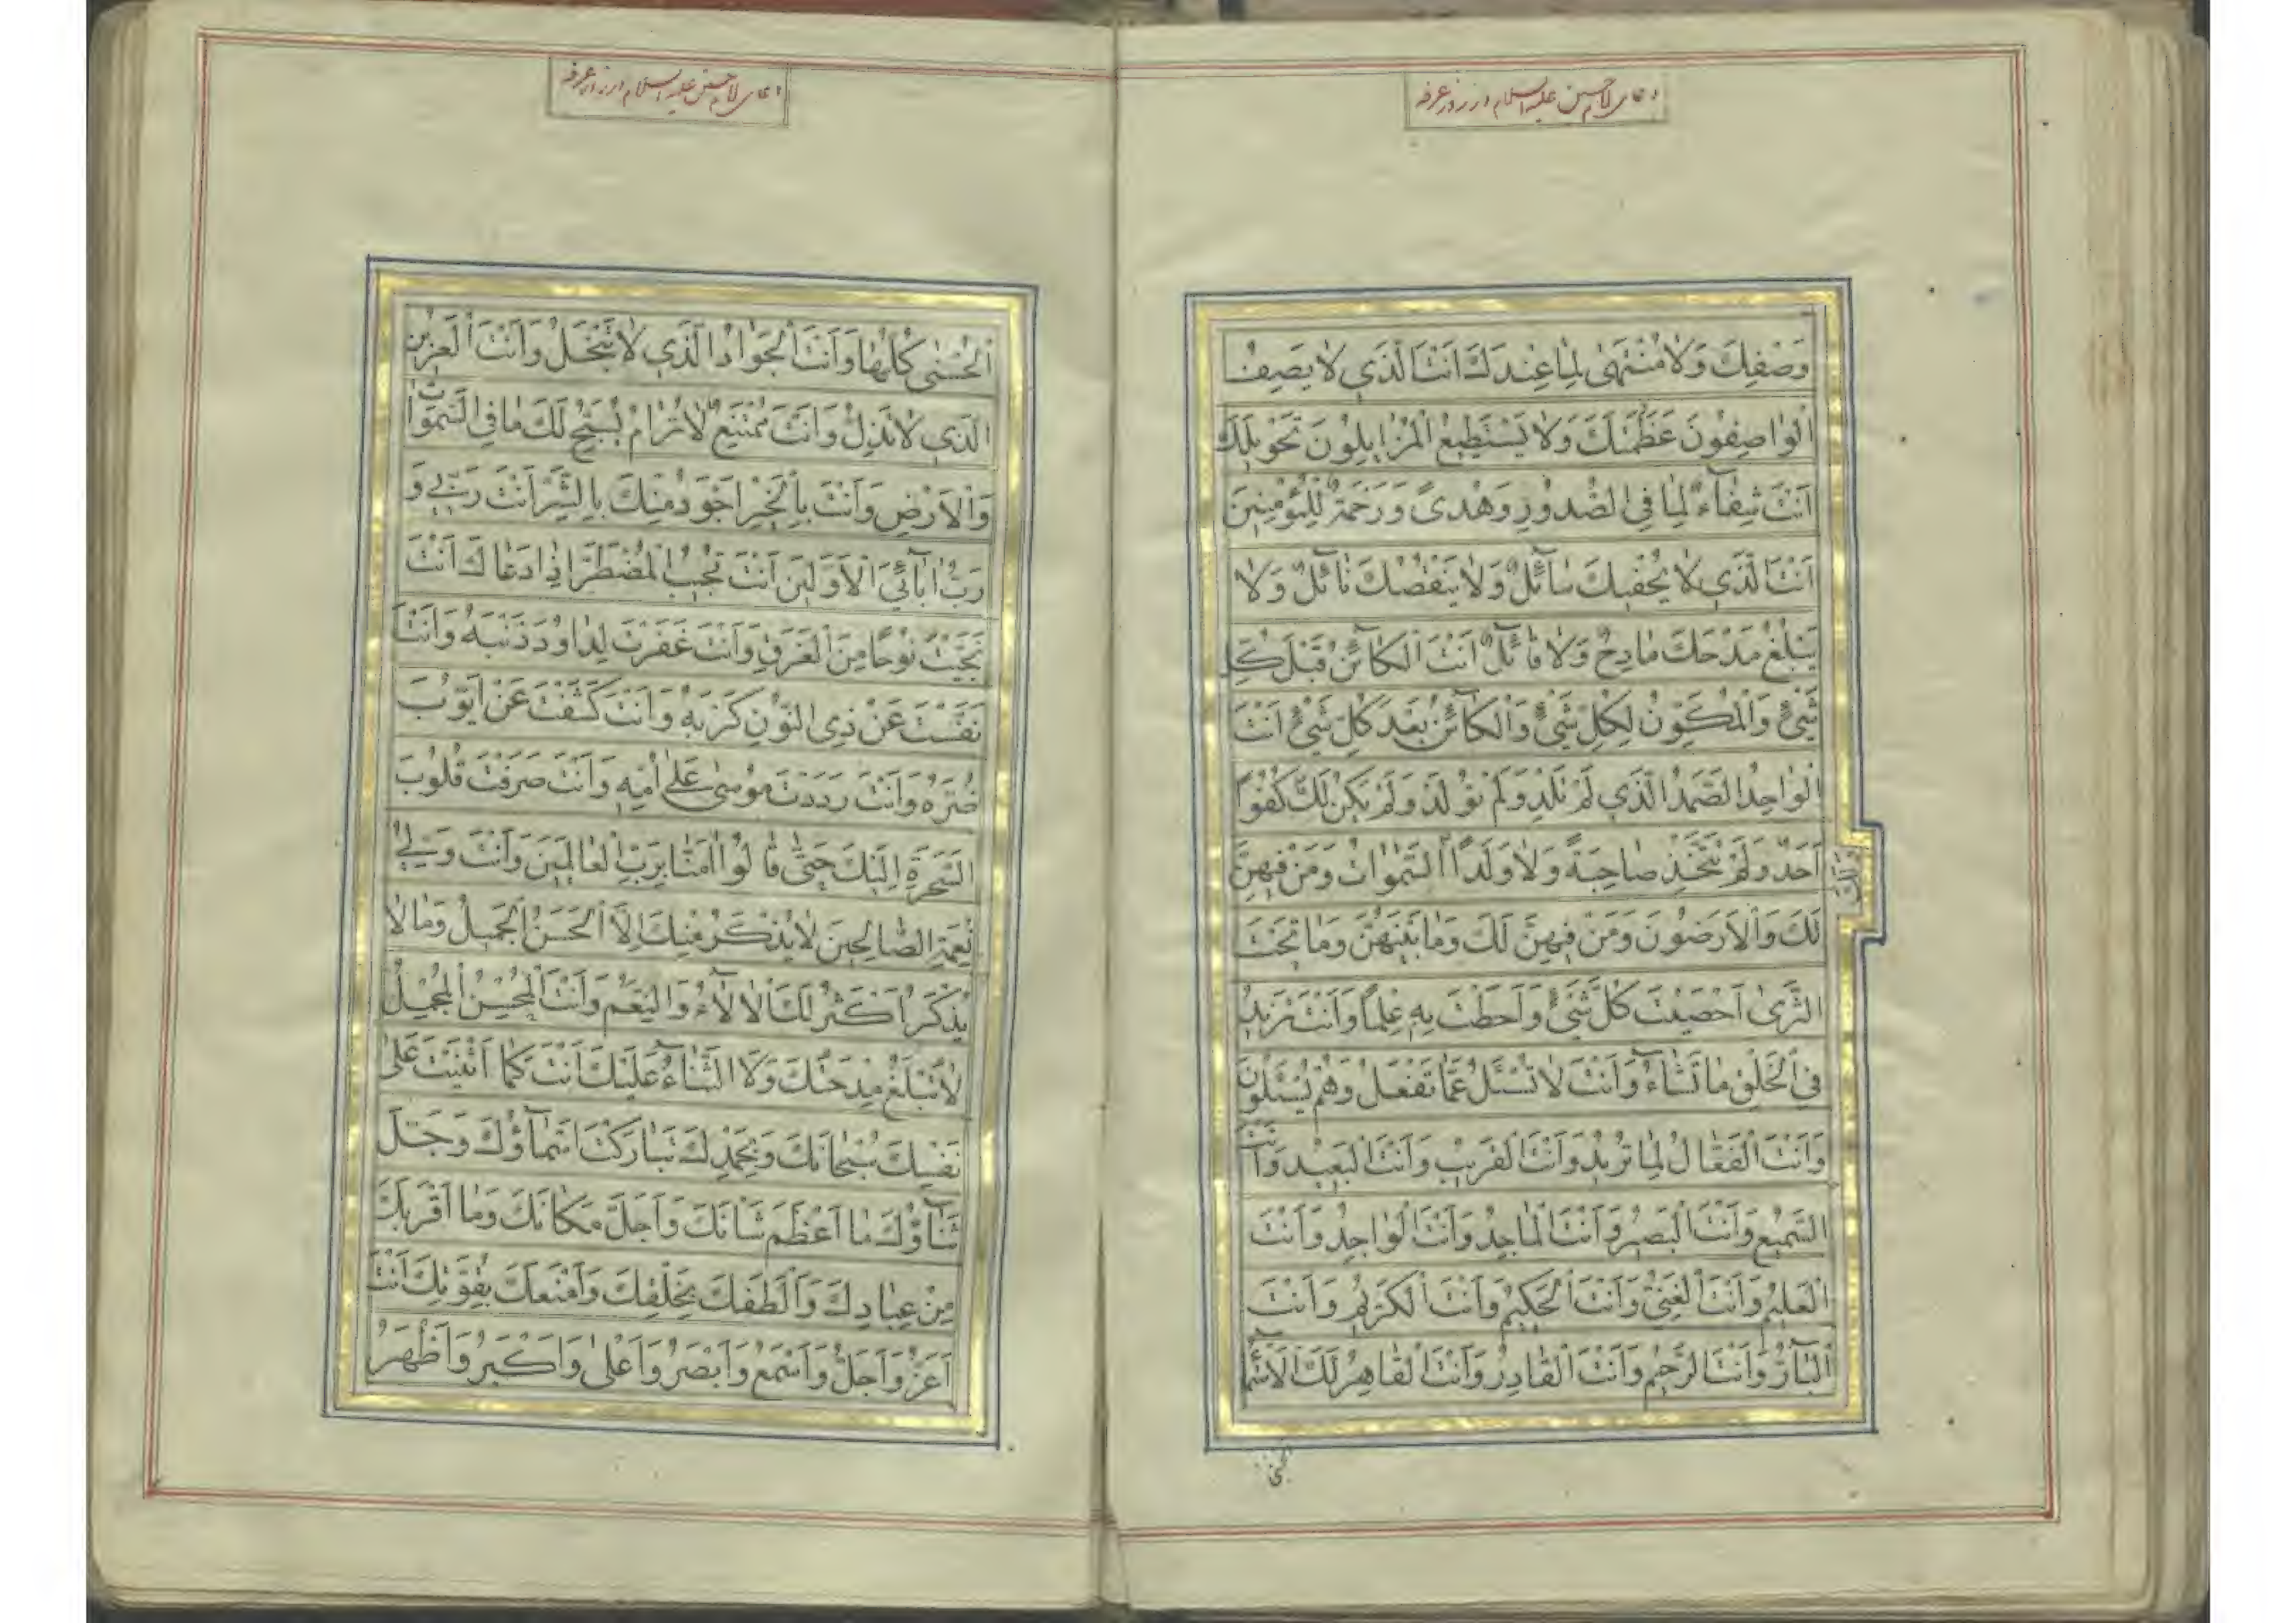 دعای امام حسین علیه السلام در روز عرفه
وَصْفِكَ وَلَا مُنْتَهَىٰ لِمَا عِنْدَكَ اَنْتَ الَّذَي لَا يَصِفُ
الْوَاصِفُونَ عَظَمَتَكَ وَلَا يَسْتَطِيعُ الْمُزَايِلُونَ تَحْوِيلَكَ
اَنْتَ شِفَآءٌ لِمَا فِي الصُّدُورِ وَهُدىً وَرَحْمَةٌ لِلْمُؤْمِنِينَ
اَنْتَ الَّذَي لَا يُحْفِيكَ سَآئِلٌ وَلَا يَنْقُصُكَ نَآئِلٌ وَلَا
يَبْلُغُ مَدْحَكَ مَادِحٌ وَلَا قَآئِلٌ اَنْتَ الْكَآئِنُ قَبْلَ كُلِّ
شَيْءٍ وَالْمُكَوِّنُ لِكُلِّ شَيْءٍ وَالْكَآئِنُ بَعْدَ كُلِّ شَيْءٍ اَنْتَ
الْوَاحِدُ الصَّمَدُ الَّذَي لَمْ تَلِدْ وَلَمْ تُولَدْ وَلَمْ يَكُنْ لَكَ كُفُوًا
اَحَدٌ وَلَمْ تَتَّخِذْ صَاحِبَةً وَلَا وَلَدًا السَّمَوَاتُ وَمَنْ فِيهِنَّ
لَكَ وَالْاَرَضُونَ وَمَنْ فِيهِنَّ لَكَ وَمَا بَيْنَهُنَّ وَمَا تَحْتَ
الثَّرَىٰ اَحْصَيْتَ كُلَّ شَيْءٍ وَاَحَطْتَ بِهِ عِلْمًا وَاَنْتَ تَزِيدُ
فِي الْخَلْقِ مَا تَشَآءُ وَاَنْتَ لَا تُسْئَلُ عَمَّا تَفْعَلُ وَهُمْ يُسْئَلُونَ
وَاَنْتَ الْفَعَّالُ لِمَا تُرِيدُ وَاَنْتَ الْقَرِيبُ وَاَنْتَ الْبَعِيدُ وَاَنْتَ
السَّمِيعُ وَاَنْتَ الْبَصِيرُ وَاَنْتَ الْمَاجِدُ وَاَنْتَ الْوَاجِدُ وَاَنْتَ
الْعَلِيمُ وَاَنْتَ الْغَنِيُّ وَاَنْتَ الْحَكِيمُ وَاَنْتَ الْكَرِيمُ وَاَنْتَ
الْبَآرُّ وَاَنْتَ الرَّحِيمُ وَاَنْتَ الْقَادِرُ وَاَنْتَ الْقَاهِرُ لَكَ الْاَسْمَآءُ
دعای امام حسین علیه السلام در روز عرفه
الْحُسْنَىٰ كُلُّهَا وَاَنْتَ الْجَوَادُ الَّذَي لَا تَبْخَلُ وَاَنْتَ الْعَزِيزُ
الَّذَي لَا تَذِلُّ وَاَنْتَ مُمْتَنِعٌ لَا تُرَامُ يُسَبِّحُ لَكَ مَا فِي السَّمَوَاتِ
وَالْاَرْضِ وَاَنْتَ بِالْخَيْرِ اَجْوَدُ مِنْكَ بِالشَّرِّ اَنْتَ رَبِّي وَ
رَبُّ اٰبَآئِيَ الْاَوَّلِينَ اَنْتَ تُجِيبُ الْمُضْطَرَّ اِذَا دَعَاكَ اَنْتَ
نَجَّيْتَ نُوحًا مِنَ الْغَرَقِ وَاَنْتَ غَفَرْتَ لِدَاوُدَ ذَنْبَهُ وَاَنْتَ
نَفَّسْتَ عَنْ ذِي النُّونِ كَرْبَهُ وَاَنْتَ كَشَفْتَ عَنْ اَيُّوبَ
ضُرَّهُ وَاَنْتَ رَدَدْتَ مُوسَىٰ عَلَىٰ اُمِّهِ وَاَنْتَ صَرَفْتَ قُلُوبَ
السَّحَرَةِ اِلَيْكَ حَتَّىٰ قَالُوا اٰمَنَّا بِرَبِّ الْعَالَمِينَ وَاَنْتَ وَلِيُّ
نِعْمَةِ الصَّالِحِينَ لَا يُذْكَرُ مِنْكَ اِلَّا الْحَسَنُ الْجَمِيلُ وَمَا لَا
يُذْكَرُ اَكْثَرُ لَكَ الْاٰلَآءُ وَالنِّعَمُ وَاَنْتَ الْمُحْسِنُ الْمُجْمِلُ
لَا تُبْلَغُ مِدْحَتُكَ وَلَا الثَّنَآءُ عَلَيْكَ اَنْتَ كَمَا اَثْنَيْتَ عَلَىٰ
نَفْسِكَ سُبْحَانَكَ وَبِحَمْدِكَ تَبَارَكَتْ اَسْمَآؤُكَ وَجَلَّ
ثَنَآؤُكَ مَا اَعْظَمَ شَانَكَ وَاَجَلَّ مَكَانَكَ وَمَا اَقْرَبَكَ
مِنْ عِبَادِكَ وَاَلْطَفَكَ بِخَلْقِكَ وَاَمْنَعَكَ بِقُوَّتِكَ اَنْتَ
اَعَزُّ وَاَجَلُّ وَاَسْمَعُ وَاَبْصَرُ وَاَعْلَىٰ وَاَكْبَرُ وَاَظْهَرُ